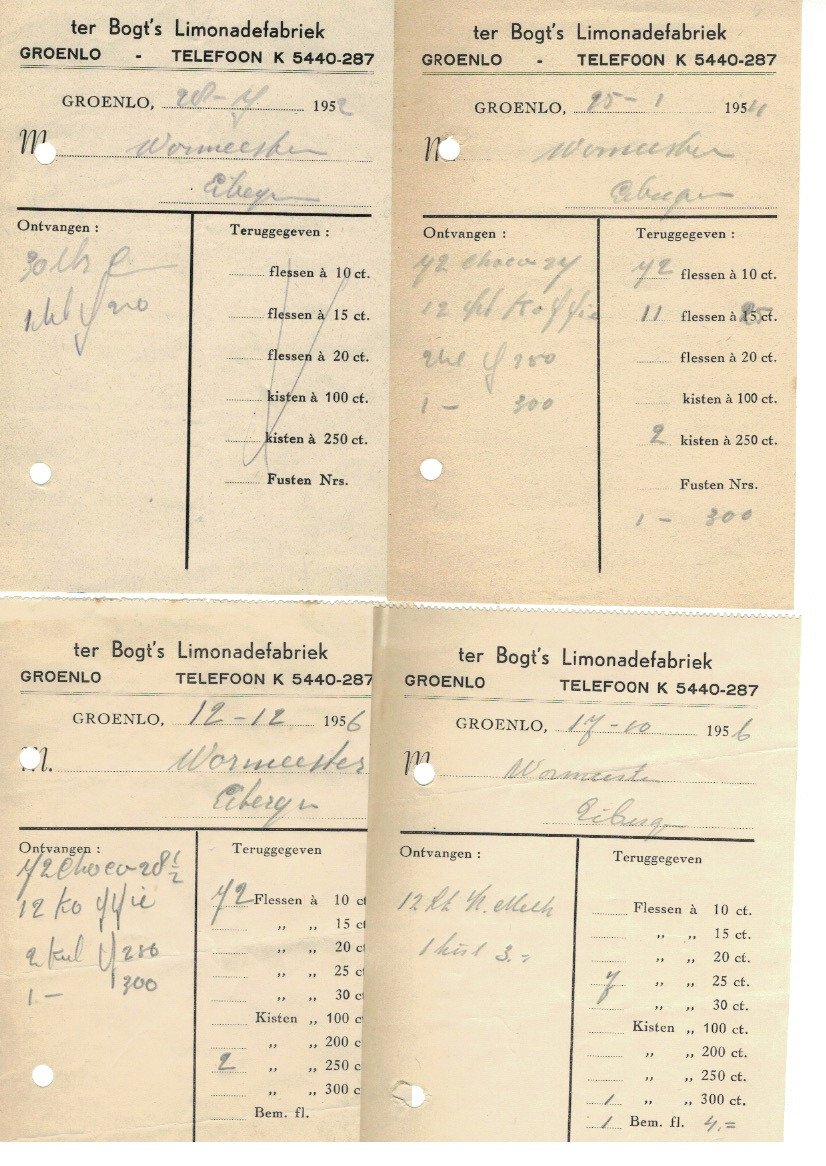 ter Bogt's Limonadefabriek
GROENLO - TELEFOON K 5440-287
GROENLO, 28-7 1952
M. Wormeester
Eibergen
Ontvangen :
Teruggegeven :
flessen à 10 ct.
flessen à 15 ct.
flessen à 20 ct.
kisten à 100 ct.
kisten à 250 ct.
Fusten Nrs.
ter Bogt's Limonadefabriek
GROENLO - TELEFOON K 5440-287
GROENLO, 25-1 1954
M. Wormeester
Eibergen
Ontvangen :
72 choco
12 Koffie
250
1 - 300
Teruggegeven :
72 flessen à 10 ct.
11 flessen à 25 ct.
flessen à 20 ct.
kisten à 100 ct.
2 kisten à 250 ct.
Fusten Nrs.
1 - 300
ter Bogt's Limonadefabriek
GROENLO TELEFOON K 5440-287
GROENLO, 12-12 1956
M. Wormeester
Eibergen
Ontvangen :
72 Choco 28½
12 Koffie
2 250
1 - 300
Teruggegeven
72 Flessen à 10 ct
„ „ 15 ct
„ „ 20 ct
„ „ 25 ct
„ „ 30 ct
Kisten „ 100 ct
„ „ 200 c
2 „ „ 250 c
„ „ 300 c
Bem. fl.
ter Bogt's Limonadefabriek
GROENLO TELEFOON K 5440-287
GROENLO, 17-10 1956
M. Wormeester
Eibergen
Ontvangen :
12
1 kist 3.=
Teruggegeven
Flessen à 10 ct.
„ „ 15 ct.
„ „ 20 ct.
7 „ „ 25 ct.
„ „ 30 ct.
Kisten „ 100 ct.
„ „ 200 ct.
„ „ 250 ct.
1 „ „ 300 ct.
1 Bem. fl. 4.=